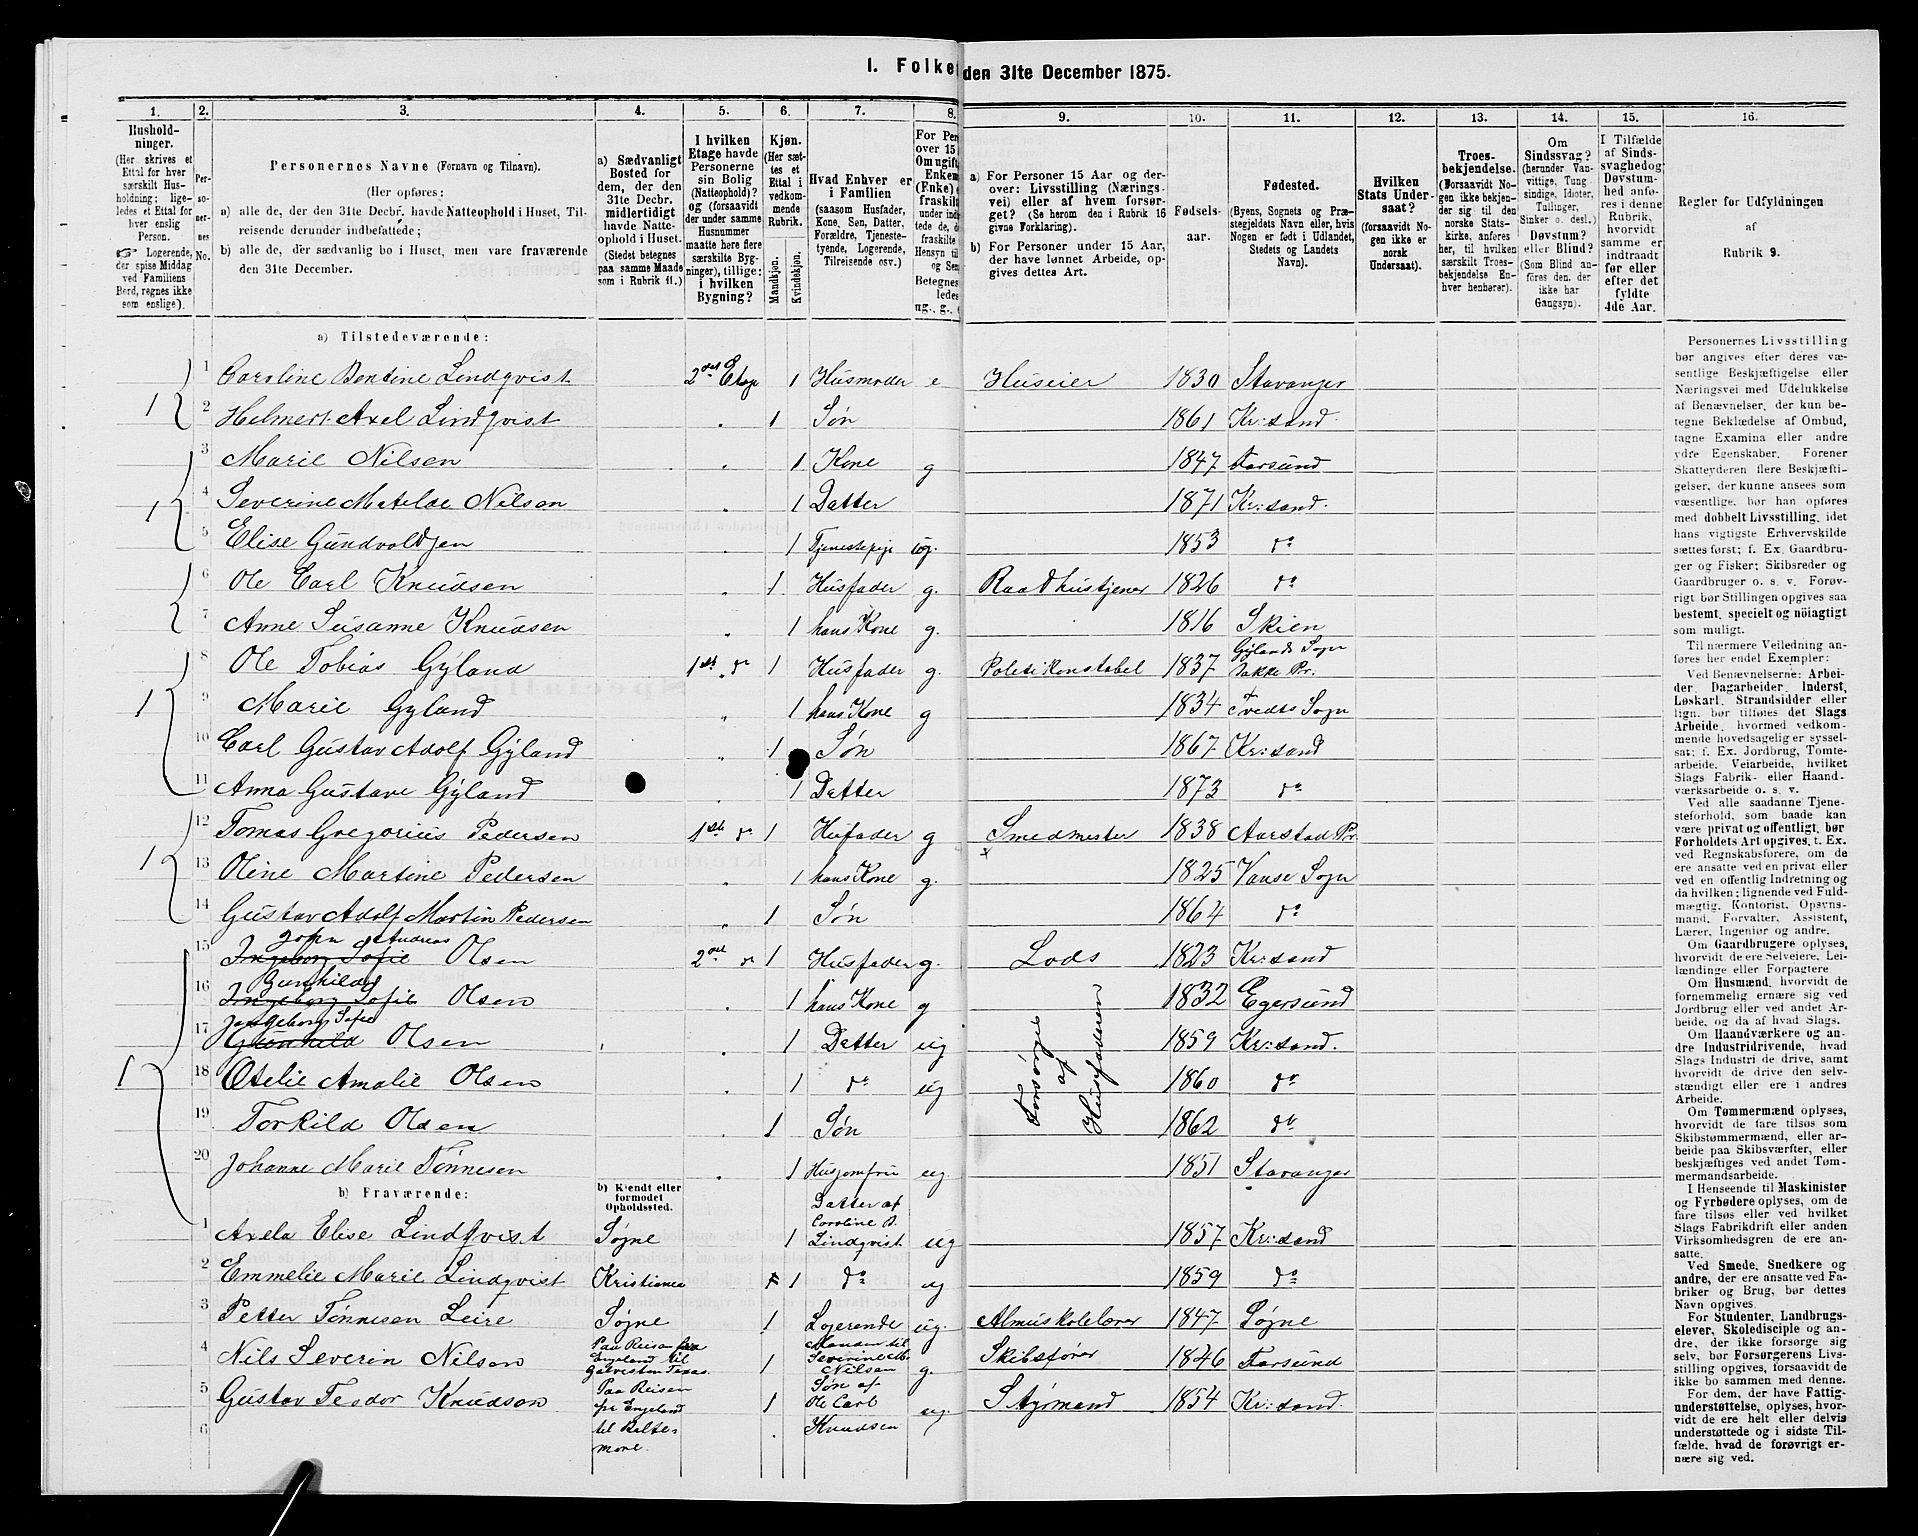 I. Folke den 31te December 1875.
1. 2. 3. 4. 5. 6. 7. 8. 9. 10. 11. 12. 13. 14. 15. 16.
Hushold-
ninger.
(Her skrives et
Ettal for hver
særskilt Hus-
holdning; lige-
ledes et Ettal for
hver enslig
Person.
☞ Logerende,
der spise Middag
ved Familiens
Bord, regnes ikke
som enslige).
Per-
so-
ner-
nes
No.
Personernes Navne (Fornavn og Tilnavn).
(Her opføres:
a) alle de, der den 31te Decbr. havde Natteophold i Huset, Til-
reisende derunder indbefattede;
b) alle de, der sædvanlig bo i Huset, men vare fraværende
den 31te December.
a) Sædvanligt
Bosted for
dem, der den
31te Decbr.
midlertidigt
havde Natte-
ophold i Huset.
(Stedet betegnes
paa samme Maade
som i Rubrik 11.)
I hvilken
Etage havde
Personerne
sin Bolig
(Natteophold)?
og (forsaavidt
der under samme
Husnummer
maatte høre flere
særskilte Byg-
ninger), tillige:
i hvilken
Bygning?
Kjøn.
(Her sæt-
tes et
Ettal i
vedkom-
mende
Rubrik.
Mandkjøn.
Kvindekjøn.
Hvad Enhver er
i Familien
(saasom Husfader,
Kone, Søn, Datter,
Forældre, Tjeneste-
tyende, Logerende,
Tilreisende osv.).
For Per
over 15
Om ugift
Enkem
(Enke) e
fraskilt
under indt
tede de, d
fraskilte
Hensyn til
og Sen
Betegnes
ledes
ug., g., e
a) For Personer 15 Aar og der-
over: Livsstilling (Nærings-
vei) eller af hvem forsør-
get? (Se herom den i Rubrik 16
givne Forklaring).
b) For Personer under 15 Aar,
der have lønnet Arbeide, op-
gives dettes Art.
Fødsels-
aar.
Fødested.
(Byens, Sognets og Præ-
stegjeldets Navn eller, hvis
Nogen er født i Udlandet,
Stedets og Landets
Navn).
Hvilken
Stats Under-
saat?
(forsaavidt No-
gen ikke er
norsk
Undersaat).
Troes-
bekjendelse.
(Forsaavidt No-
gen ikke bekjen-
der sig til den
norske Stats-
kirke, anføres
her, til hvilken
særskilt Troes-
bekjendelse En-
hver henhører).
Om
Sindssvag?
(herunder Van-
vittige, Tung-
sindige, Idioter,
Tullinger,
Sinker o. desl.)
Døvstum?
eller Blind?
(Som Blind an-
føres den, der
ikke har
Gangsyn).
I Tilfælde
af Sinds-
svaghedog
Døvstum-
hed anfø-
res i denne
Rubrik,
hvorvidt
samme er
indtraadt
før eller
efter det
fyldte
4de Aar.
Regler for Udfyldningen
af
Rubrik 9.
a) Tilstedeværende:
1 1 Caroline Bentine Lindqvist 2den Etage 1 Husmoder e Huseier 1830 Stavanger
2 Helmert Axel Lindqvist 1 Søn 1861 Kr:sand
1 3 Marie Nilsen 1 Kone g 1847 Farsund
4 Severine Matelde Nilsen 1 Datter 1871 Kr:sand.
5 Elise Gundvoldsen 1 Tjenestepige ug. 1853 do
6 Ole Carl Knudsen 1 Husfader g. Raadhustjener 1826 do
7 Anne Susanne Knudsen 1 hans Kone g. 1816 Skien
1 8 Ole Tobias Gyland 1ste do 1 Husfader g. Politikonstabel 1837 Gylands Sogn
Bakke Pr.
9 Marie Gyland 1 hans Kone g 1834 Tvedts Sogn
10 Carl Gustav Adolf Gyland 1 Søn 1867 Kr:sand
11 Anna Gustave Gyland 1 Datter 1873 do
1 12 Tomas Gregorius Pedersen 1ste do 1 Hufader g Smedmester 1838 Aarstad Pr.
13 Oline Martine Pedersen 1 hans Kone g. 1825 Vanse Sogn
14 Gustav Adolf Martin Pedersen 1 Søn 1864 do
John Andreas
1 15 Ingeborg Sofie Olsen 2den do 1 Husfader g. Lods 1823 Kr:sand
Gunhilde
16 Ingeborg Sofie Olsen 1 hans Kone g 1832 Egersund
Ingeborg Sofie
17 Gunhild Olsen 1 Datter ug 1859 Kr:sand.
18 Otelie Amalie Olsen 1 do ug 1860 do
19 Torkild Olsen 1 Søn 1862 do
Forsørges
af
Husfaderen
20 Johanne Marie Tønnesen 1 Husjomfru ug 1851 Stavanger
b) Fraværende:
b) Kjendt eller
formodet
Opholdssted.
1 Axela Elise Lindqvist Søgne 1 Datter af
Caroline B.
Lindqvist. ug 1857 Kr:sand
2 Emmelie Marie Lindqvist Kristiania 1 do ug 1859 do
3 Petter Tønnesen Leire Søgne 1 Logerende ug. Almuskolelærer 1847 Søgne
4 Nils Severin Nilsen Paa Reisen fra
England til
Galveston Texas. 1 Manden til
Severine M.
Nilsen g. Skibsfører 1846 Farsund
5 Gustav Teodor Knudsen Paa Reisen
fra England
til Balte-
more. 1 Søn af
Ole Carl
Knudsen ug. Styrmand 1854 Kr:sand.
6
Personernes Livsstilling
bør angives efter deres væ-
sentlige Beskjæftigelse eller
Næringsvei med Udelukkelse
af Benævnelser, der kun be-
tegne Beklædelse af Ombud,
tagne Examina eller andre
ydre Egenskaber. Forener
Skatteyderen flere Beskjæfti-
gelser, der kunne ansees som
væsentlige, bør han opføres
med dobbelt Livsstilling, idet
hans vigtigste Erhvervskilde
sættes først; f. Ex. Gaardbru-
ger og Fisker; Skibsreder og
Gaardbruger o. s. v. Forøv-
rigt bør Stillingen opgives saa
bestemt, specielt og nöiagtigt
som muligt.
Til nærmere Veiledning an-
føres her endel Exempler:
Ved Benævnelserne: Arbei-
der, Dagarbeider, Inderst,
Løskarl, Strandsidder eller
lign. bør tilføies det Slags
Arbeide, hvormed vedkom-
mende hovedsagelig er syssel-
sat; f. Ex. Jordbrug, Tomte-
arbeide, Veiarbeide, hvilket
Slags Fabrik- eller Haand-
værksarbeide o. s. v.
Ved alle saadanne Tjene-
steforhold, som baade kan
være privat og offentligt, bør
Forholdets Art opgives, t. Ex.
ved Regnskabsførere, om de
ere ansatte ved en privat eller
ved en offentlig Indretning og
da hvilken; lignende ved Fuld-
mægtig, Kontorist, Opsyns-
mand, Forvalter, Assistent,
Lærer, Ingeniør og andre.
Om Gaardbrugere oplyses,
hvorvidt de ere Selveiere, Lei-
lændinge eller Forpagtere
Om Husmænd, hvorvidt de
fornemmelig ernære sig ved
Jordbrug eller ved andet Ar-
beide, og da af hvad Slags.
Om Haandværkere og an-
dre Industridrivende, hvad
Slags Industri de drive, samt
hvorvidt de drive den selv-
stændigt eller ere i andres
Arbeide.
Om Tømmermænd oplyses,
hvorvidt de fare tilsøs som
Skibstømmermænd, eller ar-
beide paa Skibsværfter, eller
beskjæftiges ved andet Tøm-
mermandsarbeide.
I Henseende til Maskinister
og Fyrbødere oplyses, om de
fare tilsøs eller ved hvilket
Slags Fabrikdrift eller anden
Virksomhedsgren de ere an-
satte.
Ved Smede, Snedkere og
andre, der ere ansatte ved Fa-
briker og Brug, bør dettes
Navn opgives.
For Studenter, Landbrugs-
elever, Skoledisciple og an-
dre, der ikke forsørge sig
selv, bør Forsørgerens Livs-
stilling opgives, forsaavidt de
ikke bo sammen med denne.
For dem, der have Fattig-
understøttelse, oplyses, hvor-
vidt de ere helt eller delvis
understøttede og i sidste Til-
fælde, hvad de forøvrigt er-
nære sig ved.